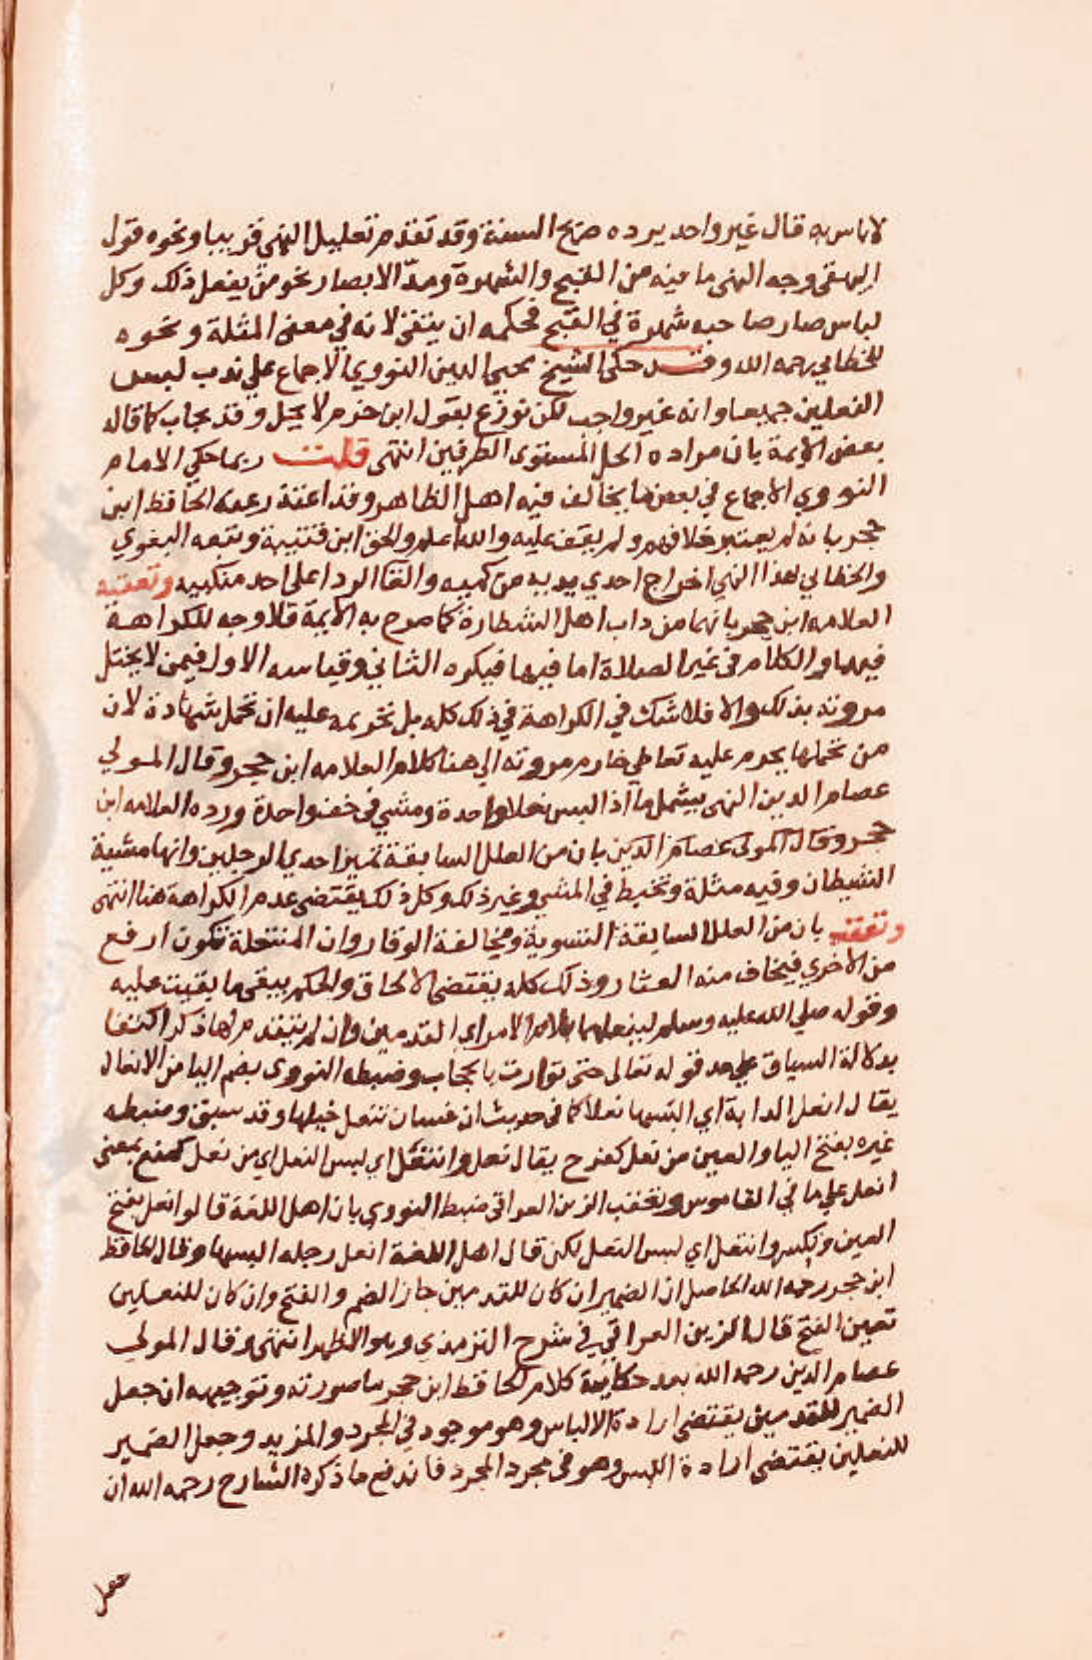 لاباس به قال غير واحد يرده صريح السنة وقد تقدم تعليل النهي قريبا ونحوه قول
البيهقي وجه النهي ما فيه من القبح والشهرة ومدّ الابصار نحو من يفعل ذلك وكل
لباس صار صاحبه شهرة في القبح فحكمه ان يتقى لانه في معنى المثلة ونحوه
للخطابي رحمه الله وقد حكى الشيخ محيي الدين النووي الاجماع علي ندب لبس
النعلين جميعا وانه غير واجب لكن نوزع بقول ابن حزم لا يحل وقد يجاب كما قاله
بعض الايمة بان مراده الحل المستوى الطرفين انتهى قلت ربما حكي الامام
النووي الاجماع في بعض ما يخالف فيه اهل الظاهر وقد اعتذر عنه الحافظ ابن
حجر بانه لم يعتبر خلافهم ولم يقف عليه والله اعلم والحق ابن قتيبة وتبعه البغوي
والخطابي بهذا النهي اخراج احدي يديه من كميه والقا الردا على احد منكبيه وتعقبه
العلامه ابن حجر بانهما من داب اهل الشطارة كما صرح به الايمة فلا وجه للكراهة
فيهما والكلام في غير الصلاة اما فيها فيكره الثاني وقياسه الاول فيمن لا يختل
مروته بذلك والا فلا شك في الكراهة في ذلك كله بل تحريمه عليه ان تحمل شهادة لان
من تحملها يحرم عليه تعاطي خارم مروته الي هنا كلام العلامه ابن حجر وقال المولي
عصام الدين النهي يشمل ما اذا لبس نعلا واحدة ومشي في خف واحدة ورده العلامه ابن
حجر وقال المولى عصام الدين بان من العلل السابقة تميز احدي الرجلين وانها مشية
الشيطان وفيه مثلة وتخبط في المشي وغير ذلك وكل ذلك يقتضى عدم الكراهة هنا انتهى
وتعقبه بان من العلل السابقة التسوية ومخالفة الوقار وان المنتعلة تكون ارفع
من الاخري فيخاف منه العثار وذلك كله يقتضى الالحاق والحكم يبقى ما بقيت عليه
وقوله صلي الله عليه وسلم لينعلهما بلام الامر اي القدمين وان لم يتقدم لهما ذكر اكتفا
بدلالة السياق علي حد قوله تعالى حتى توارت بالحجاب وضبطه النووي بضم اليا من الانعال
يقال انعل الدابة اي البسها نعلا كما في حديث ان غسان تنعل خيلها وقد سبق وضبطه
غيره بفتح اليا والعين من نعل كفرح يقال نعل وانتعل اي لبس النعل اي من نعل كمنع بمعنى
انعل علي ما في القاموس وتعقب الزين العراقي ضبط النووي بان اهل اللغة قالوا نعل بفتح
العين وتكسر وانتعل اي لبس النعل لكن قال اهل اللغة انعل رجله البسها وقال الحافظ
ابن حجر رحمه الله الحاصل ان الضمير ان كان للقدمين جاز الضم والفتح وان كان للنعلين
تعين الفتح قال الزين العراقي في شرح الترمذي وهو الاظهر انتهى وقال المولي
عصام الدين رحمه الله بعد حكاية كلام الحافظ ابن حجر ما صورته وتوجيهه ان جعل
الضمير للقدمين يقتضى ارادة الالباس وهو موجود في المجرد والمزيد وجعل الضمير
للنعلين يقتضى ارادة اللبس وهو في مجرد المجرد فاندفع ما ذكره الشارح رحمه الله ان
جعل